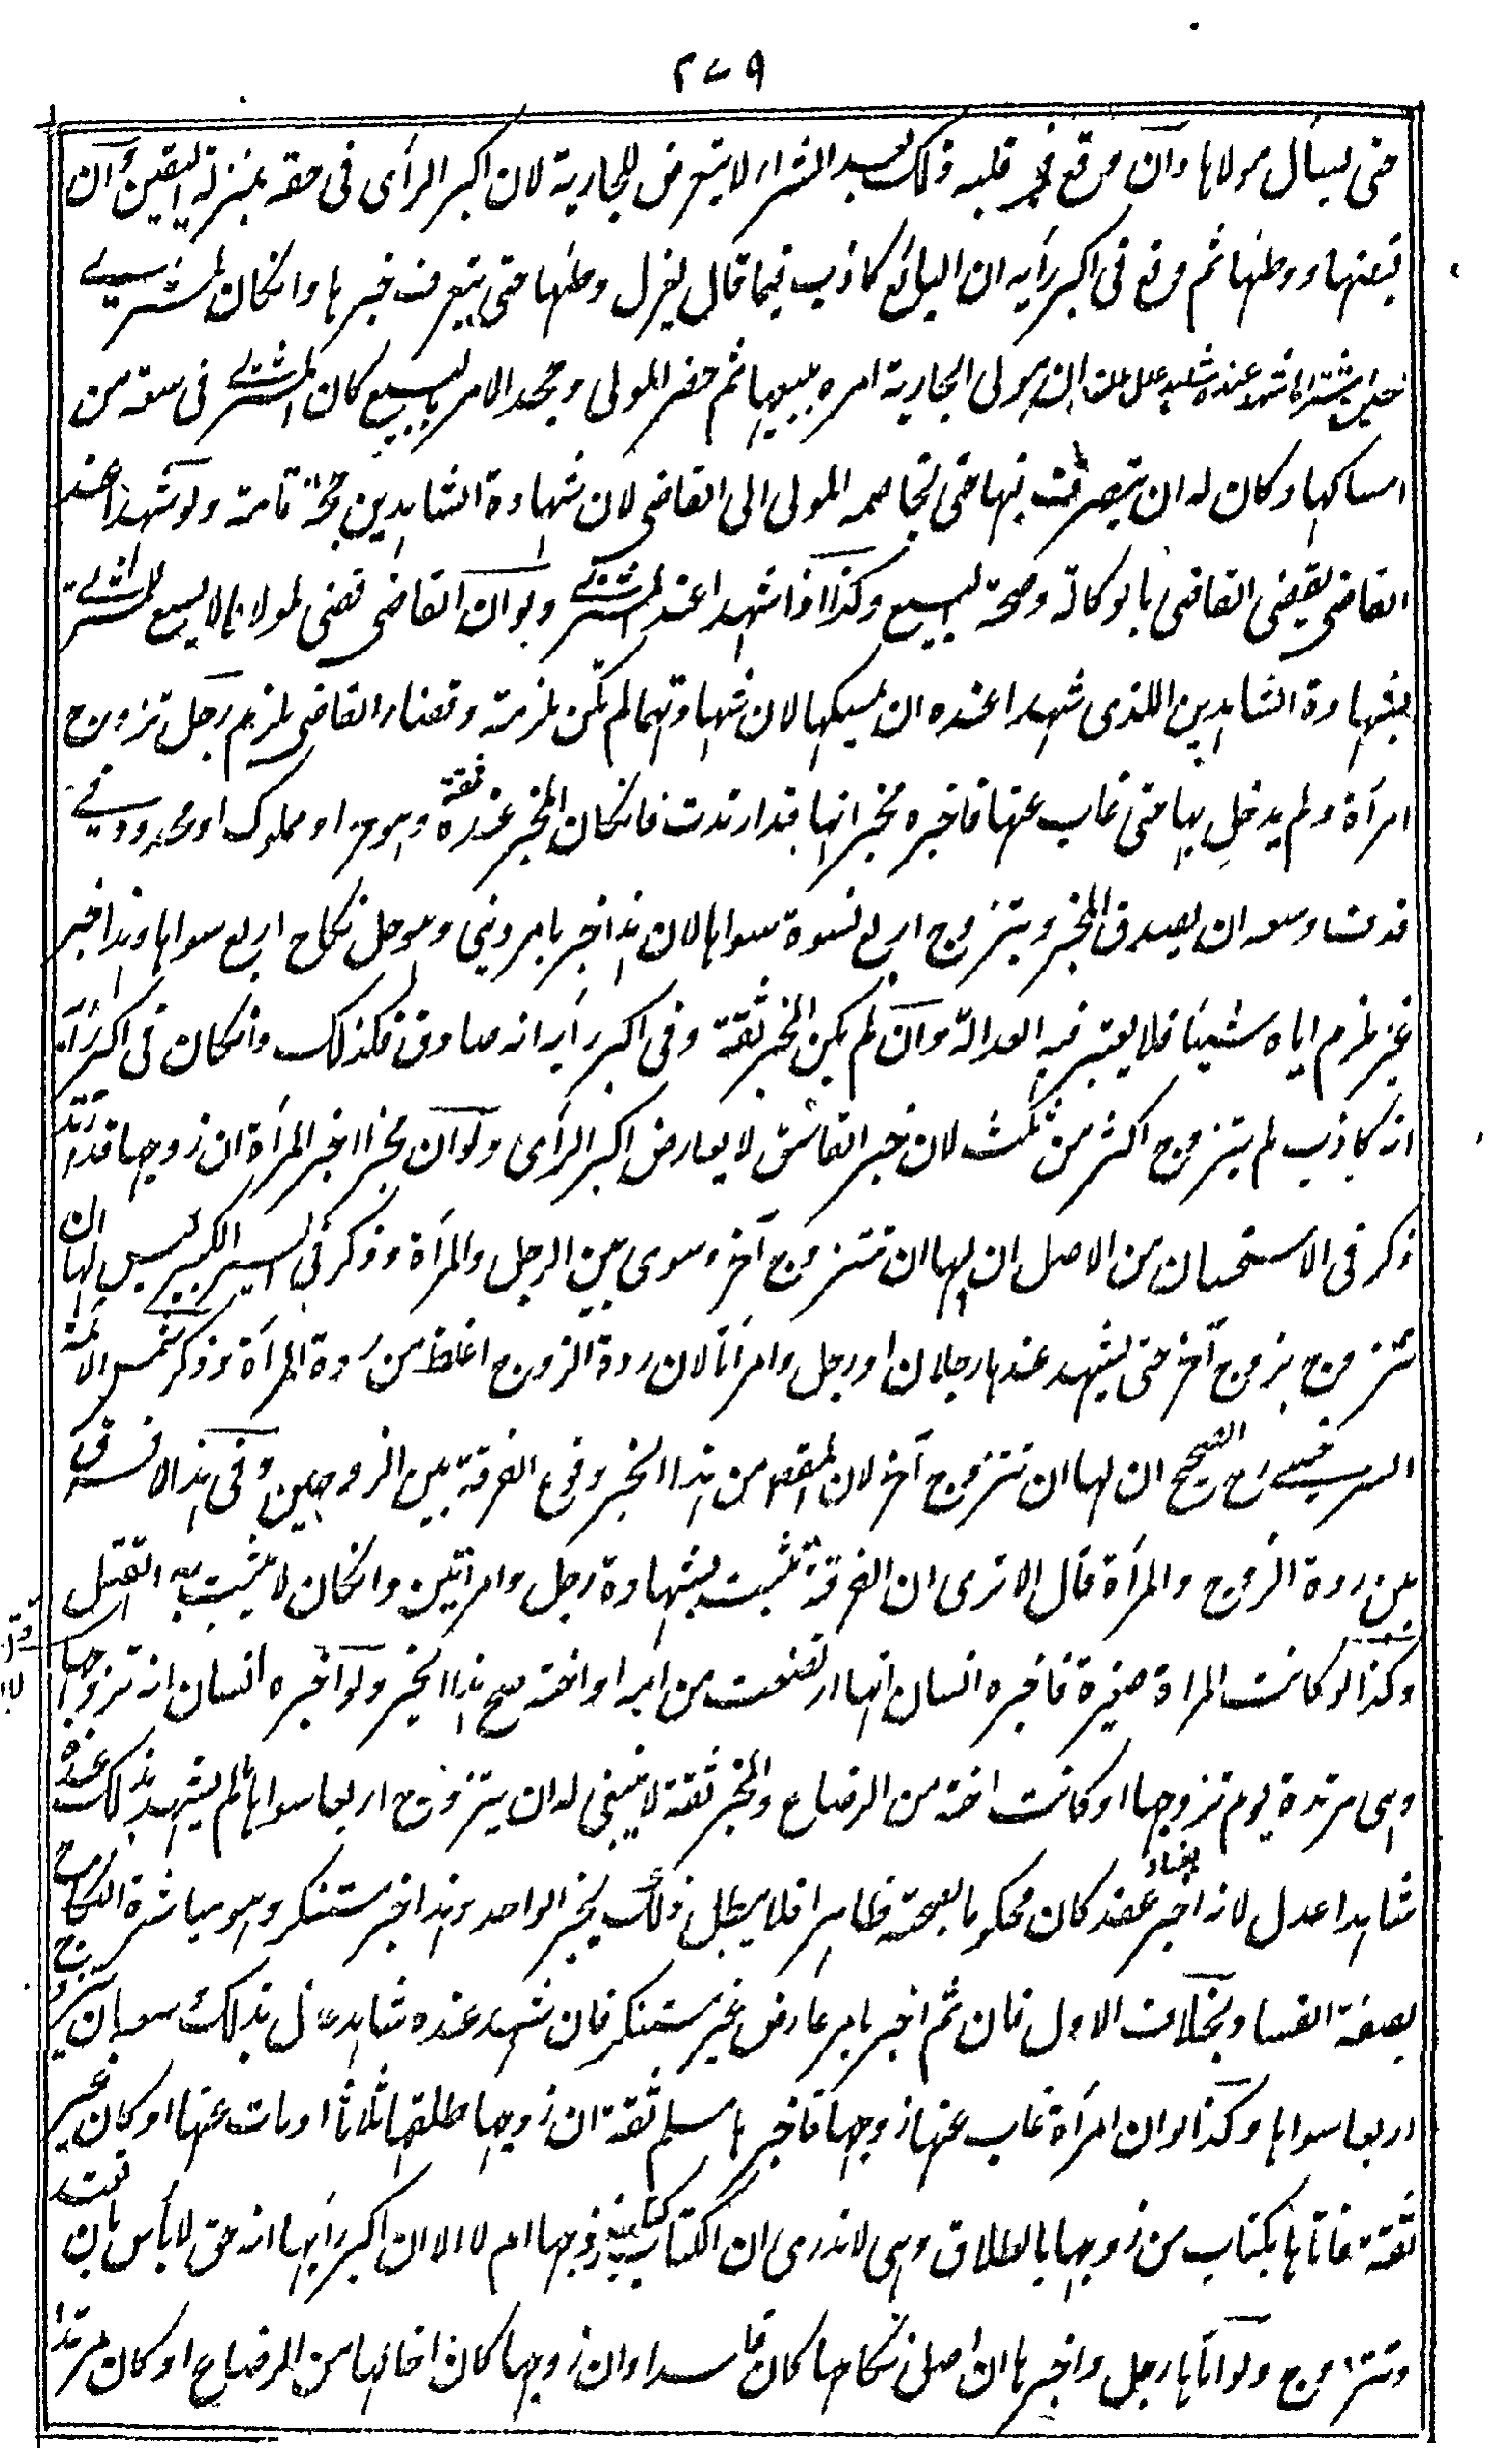 ٢٧٩
حتى يسأل مولاها وان وقع في قلبه ذلك بعد الشراء لا يتعرض للجارية لان اكبر الرأى فى حقه بمنزلة اليقين وان
قبضها ووطئها ثم وقع فى اكبر رأيه ان البائع كاذب فيما قال يعزل وطئها حتى يتعرف خبرها وانكان المشترے
حين اشتراها شهد عنده شاهدا عدل ان مولى الجارية امره ببيعها ثم حضر المولى وجحد الامر بالبيع كان المشترے فى سعة من
امساكها وكان له ان يتصرف فيها حتى تخاصمه المولى الى القاضى لان شهادة الشاهدين حجة تامة ولو شهدا عند
القاضى يقضى القاضى بالوكالة وصحة البيع وكذا اذا شهدا عند المشترے ولو ان القاضى قضى لمولاها لا يسع للمشترے
بشهادة الشاهدين اللذى شهدا عنده ان يمسكها لان شهادتهما لم تكن ملزمة وقضاء القاضى ملزم رجل تزوج
امرأة ولم يدخل بها حتى غاب عنها فاخبره مخبر انها قد ارتدت فانكان المخبر عنده ثقة وهو حر او مملوك او محدود فے
قذف وسعه ان يصدق المخبر ويتزوج اربع نسوة سواها لان هذا خبر بامر دينى وهو حل نكاح اربع سواها وهذا خبر
غير ملزم اياه شيئا فلا يعتبر فيه العدالة وان لم يكن المخبر ثقة وفى اكبر رأيه انه صادق فكذلك وانكان فى اكبر رأيه
انه كاذب لم يتزوج اكثر من ثلث لان خبر الفاسق لا يعارض اكبر الرأى ولو ان مخبرا اخبر المرأة ان زوجها قد ارتد
ذكر فى الاستحسان من الاصل ان لها ان تتزوج آخر وسوى بين الرجل والمرأة وذكر فى السير الكبير ليس لها ان
تتزوج بزوج آخر حتى يشهد عندها رجلان او رجل وامرأتا لان ردة الزوج اغلظ من ردة المرأة وذكر شمس الائمة
السرخسے رح الصحيح ان لها ان تتزوج آخر لان المقصود من هذا الخبر وقوع الفرقة بين الزوجين وفى هذا لا فرق
بين ردة الزوج والمرأة قال الا ترى ان الفرقة تثبت بشهادة رجل وامرأتين وانكان لا يثبت به القتل
وكذا لو كانت المرأة صغيرة فاخبره انسان انها ارتضعت من امه او اخته صح هذا الخبر ولو اخبره انسان انه تزوجها
وهى مرتدة يوم تزوجها او كانت اخته من الرضاع والمخبر ثقة لا ينبغى له ان يتزوج اربعا سواها ما لم يشهد بذلك عنده
شاهدا عدل لانه اخبر بفساد عقد كان محكوما بصحته ظاهرا فلا يبطل ذلك بخبر الواحد وهذا خبر مستنكر وهو مباشرة النكاح
بصفة الفساد وبخلاف الاول فان ثم اخبر بامر عارض غير مستنكر فان شهد عنده شاهدا عدل بذلك وسعه ان يتزوج
اربعا سواها وكذا لو ان امرأة غاب عنها زوجها فاخبرها مسلم ثقة ان زوجها طلقها ثلاثا او مات عنها او كان غير
ثقة فاتاها بكتاب من زوجها بالطلاق وهى لا تدرى ان الكتاب كتاب زوجها ام لا الا ان اكبر رأيها انه حق لا بأس بان تعتد
وتتزوج ولو اتاها رجل واخبرها ان اصل نكاحها كان فاسدا وان زوجها كان اخا لها من الرضاع او كان مرتدا